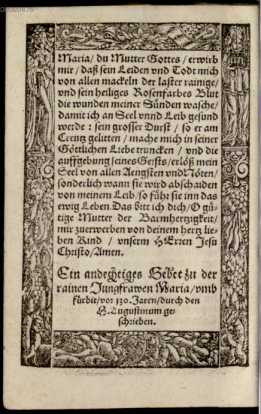 Maria/ du Mutter Gottes / erwirb
mir / daß sein Leiden vnd Todt mich
von allen mackeln der laster rainige/
vnd sein heiliges Rosenfarbes Blut
die wunden meiner Sünden wasche/
damit ich an Seel vnnd Leib gesund
werde : sein grosser Durst / so er am
Creutz gelitten / mache mich in seiner
Göttlichen Liebe truncken / vnd die
auffgebung seines Geists/ erlöß mein
Seel von allen Aengsten vnd Nöten/
sonderlich wann sie wird abschaiden
von meinem Leib/ so führ sie inn das
ewig Leben. Das bitt ich dich/ O gü-
tige Mutter der Barmhertzigkeit/
mir zuerwerben von deinem hertz lie-
ben Kind / vnserm HErren Jesu
Christo/ Amen.
Ein andechtiges Gebet zu der
rainen Jungkfrawen Maria/ vmb
fürbit/ vor 130. Jaren/ durch den
H. Augustinum ge-
schrieben.